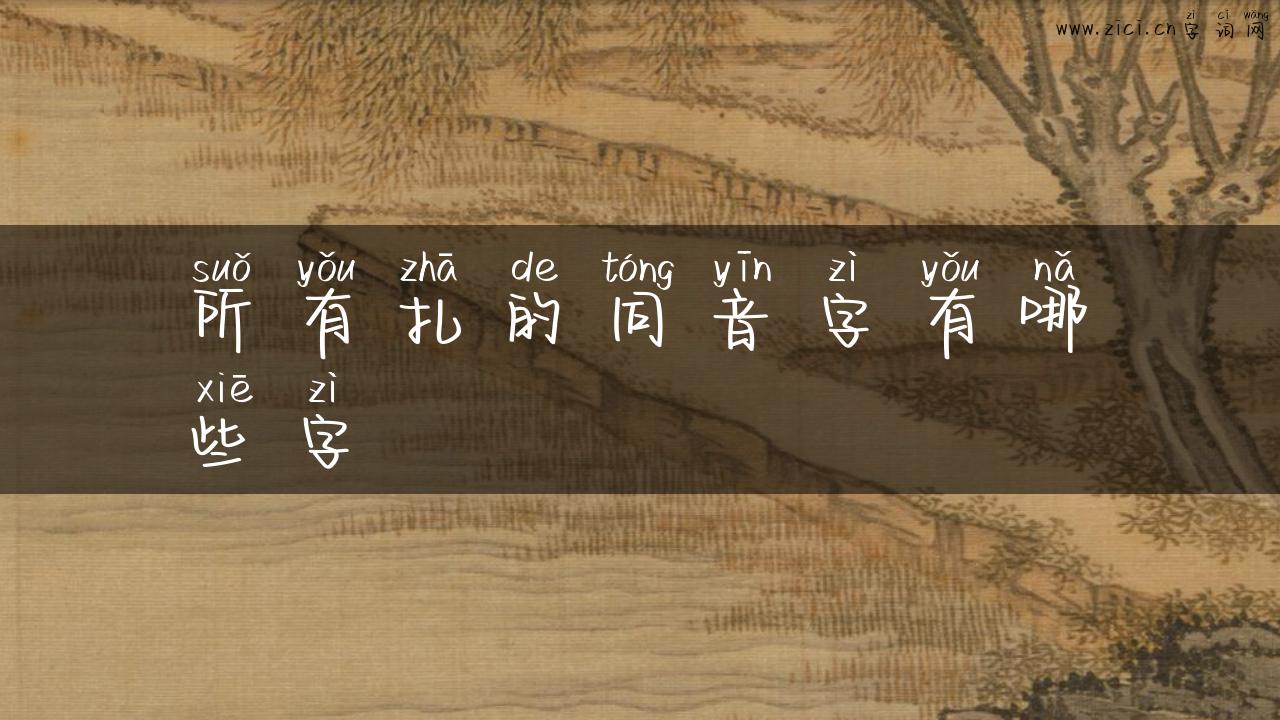 zì cí wǎng
www.zici.cn字词网
suǒ yǒu zhā de tóng yīn zì yǒu nǎ
所有扎的同音字有哪
xiē zì
些字